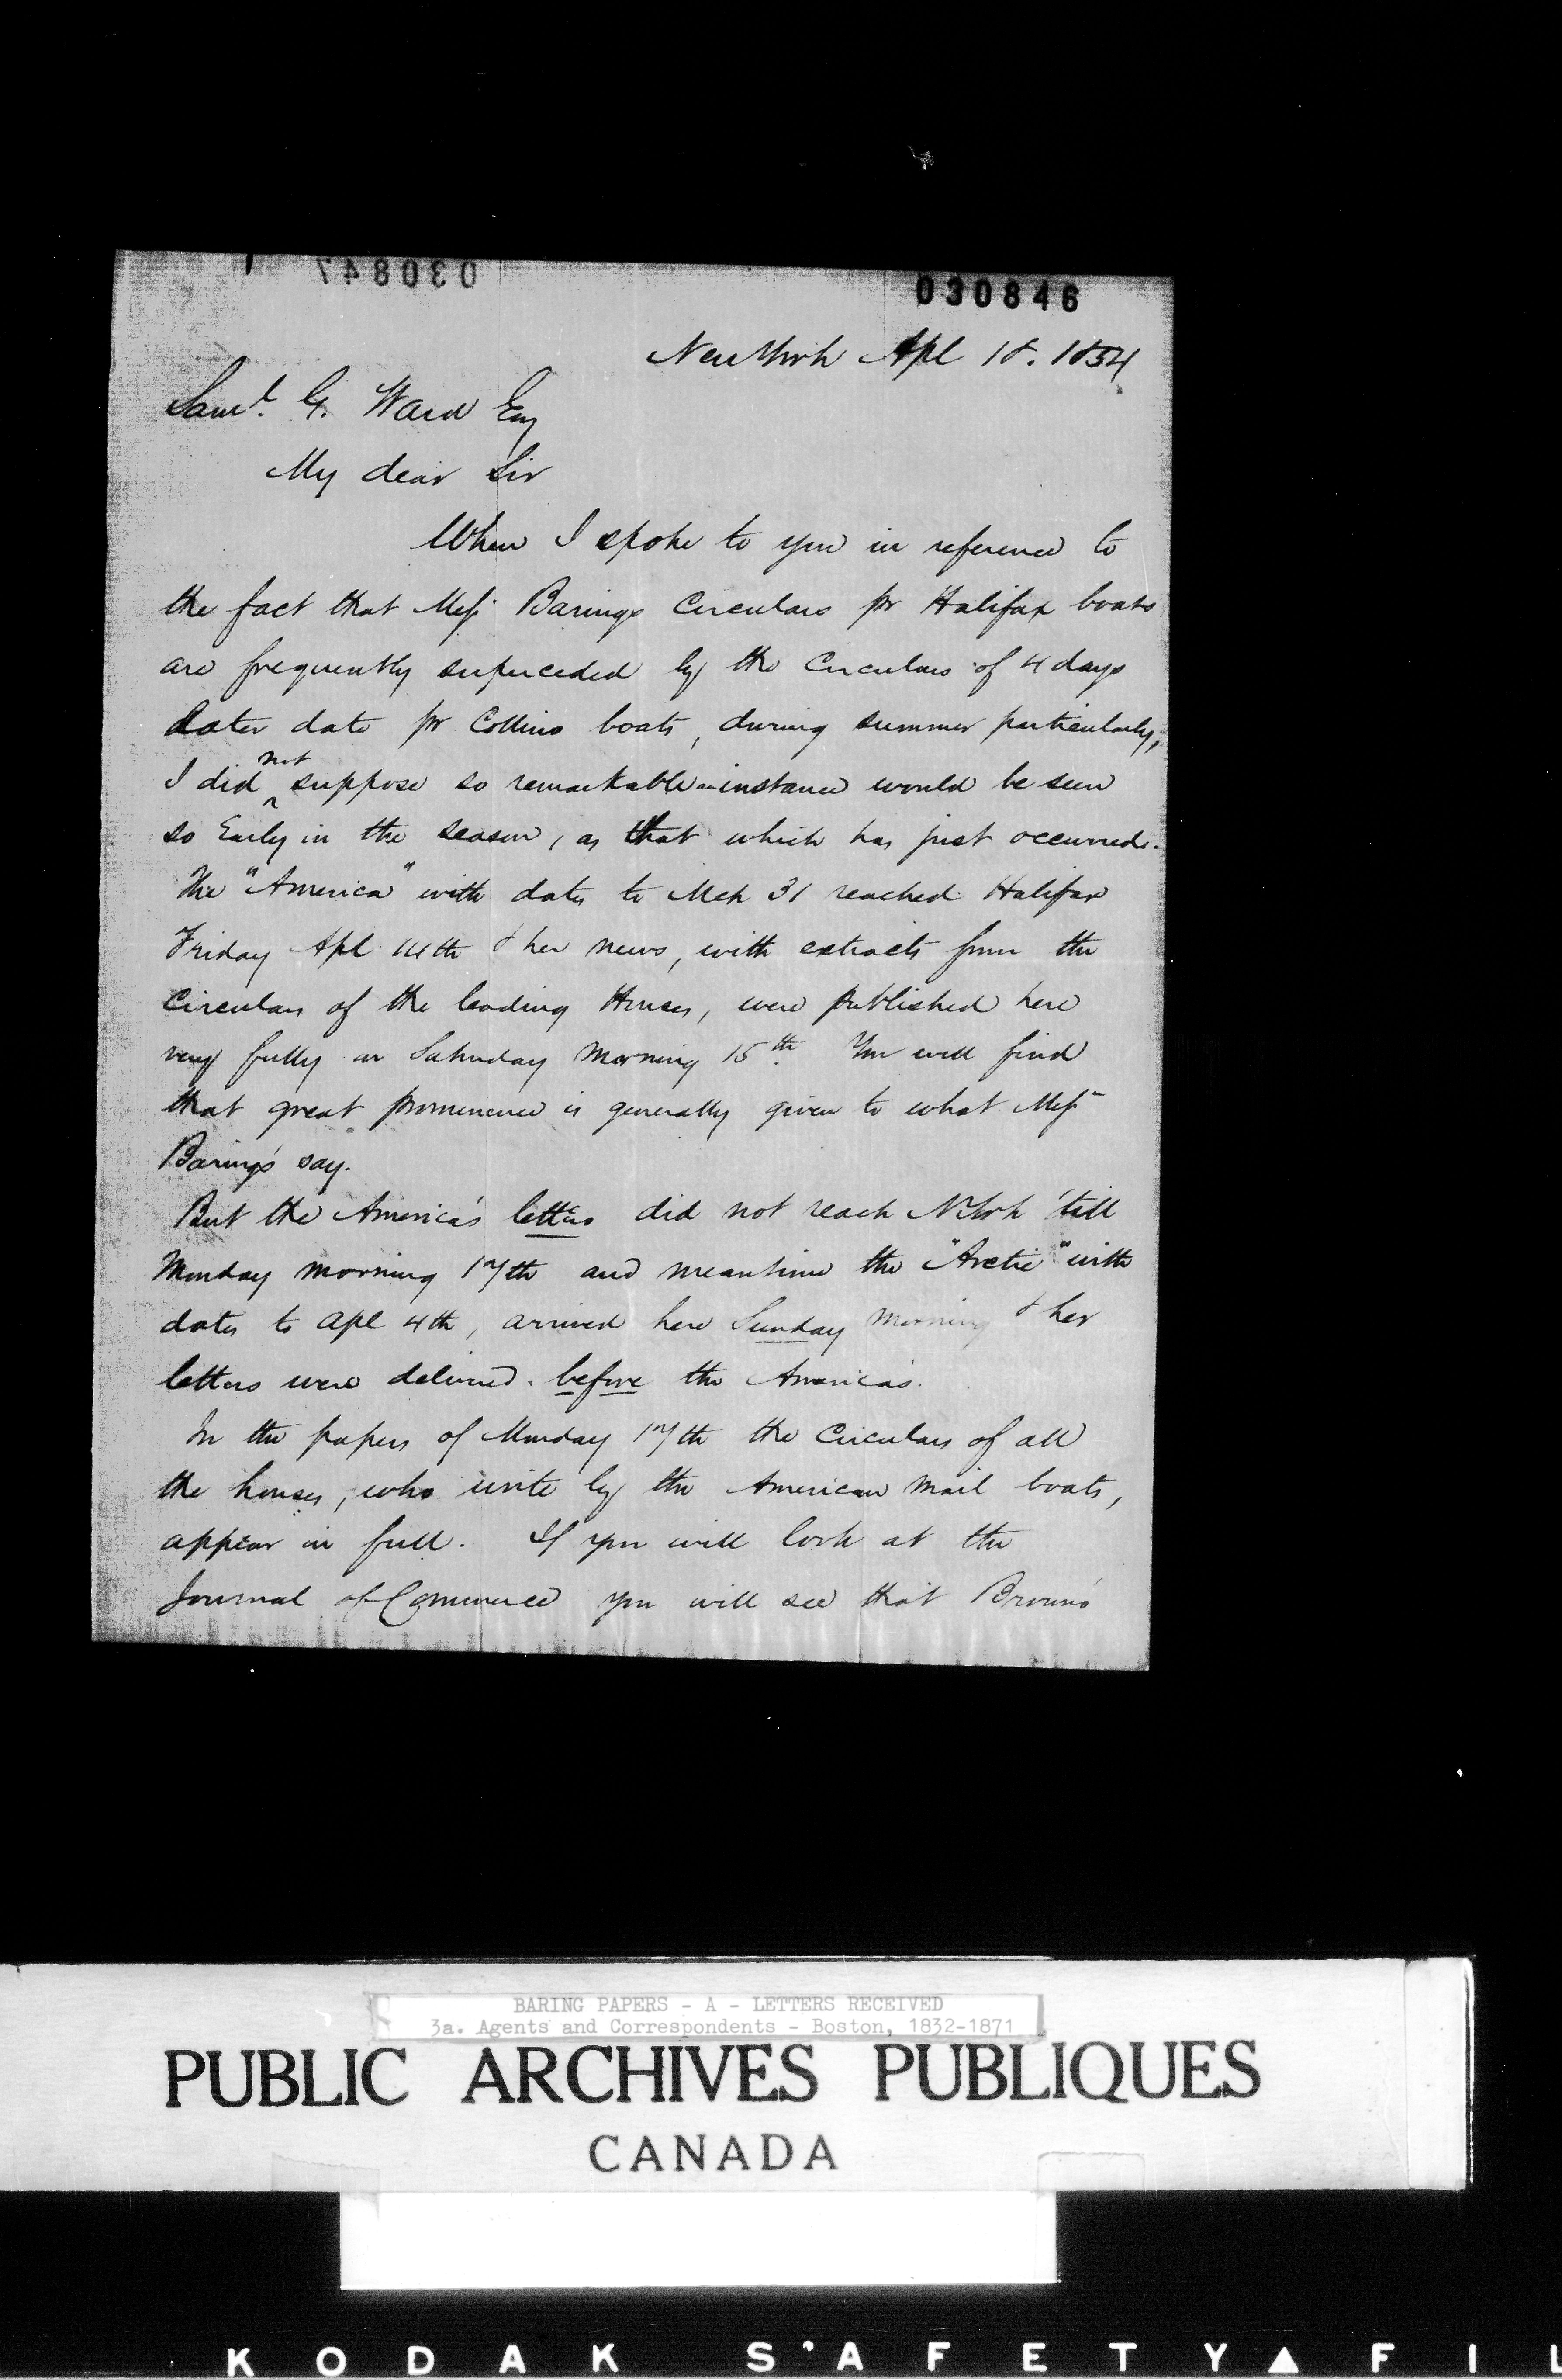 030847
030846
New York Apl 18. 1854
Saml. G. Ward Esq
My dear Sir
When I spoke to you in reference to
the fact that Messrs Barings Circulars pr Halifax boats
are frequently superceded by the Circulars of 4 days
later date pr Collins boats, during summer particularly,
I did not suppose so remarkable an instance would be seen
so Early in the season, as that which has just occurred.
The "America" with dates to Mch 31 reached Halifax
Friday Apl 14th & her news, with extracts from the
Circulars of the leading Houses, were published here
very fully on Saturday Morning 15th. You will find
that great prominence is generally given to what Messrs
Barings say.
But the America's letters did not reach NYork 'till
Monday morning 17th and meantime the "Arctic" with
dates to Apl 4th, arrived here Sunday Morning & her
letters were delivered before the America's.
In the papers of Monday 17th the Circulars of all
the houses, who write by the American Mail boats,
appear in full. If you will look at the
Journal of Commerce you will see that Browns'
BARING PAPERS - A - LETTERS RECEIVED
3a. Agents and Correspondents - Boston, 1832-1871
PUBLIC ARCHIVES PUBLIQUES
CANADA
KODAK S'AFETY▲FIL